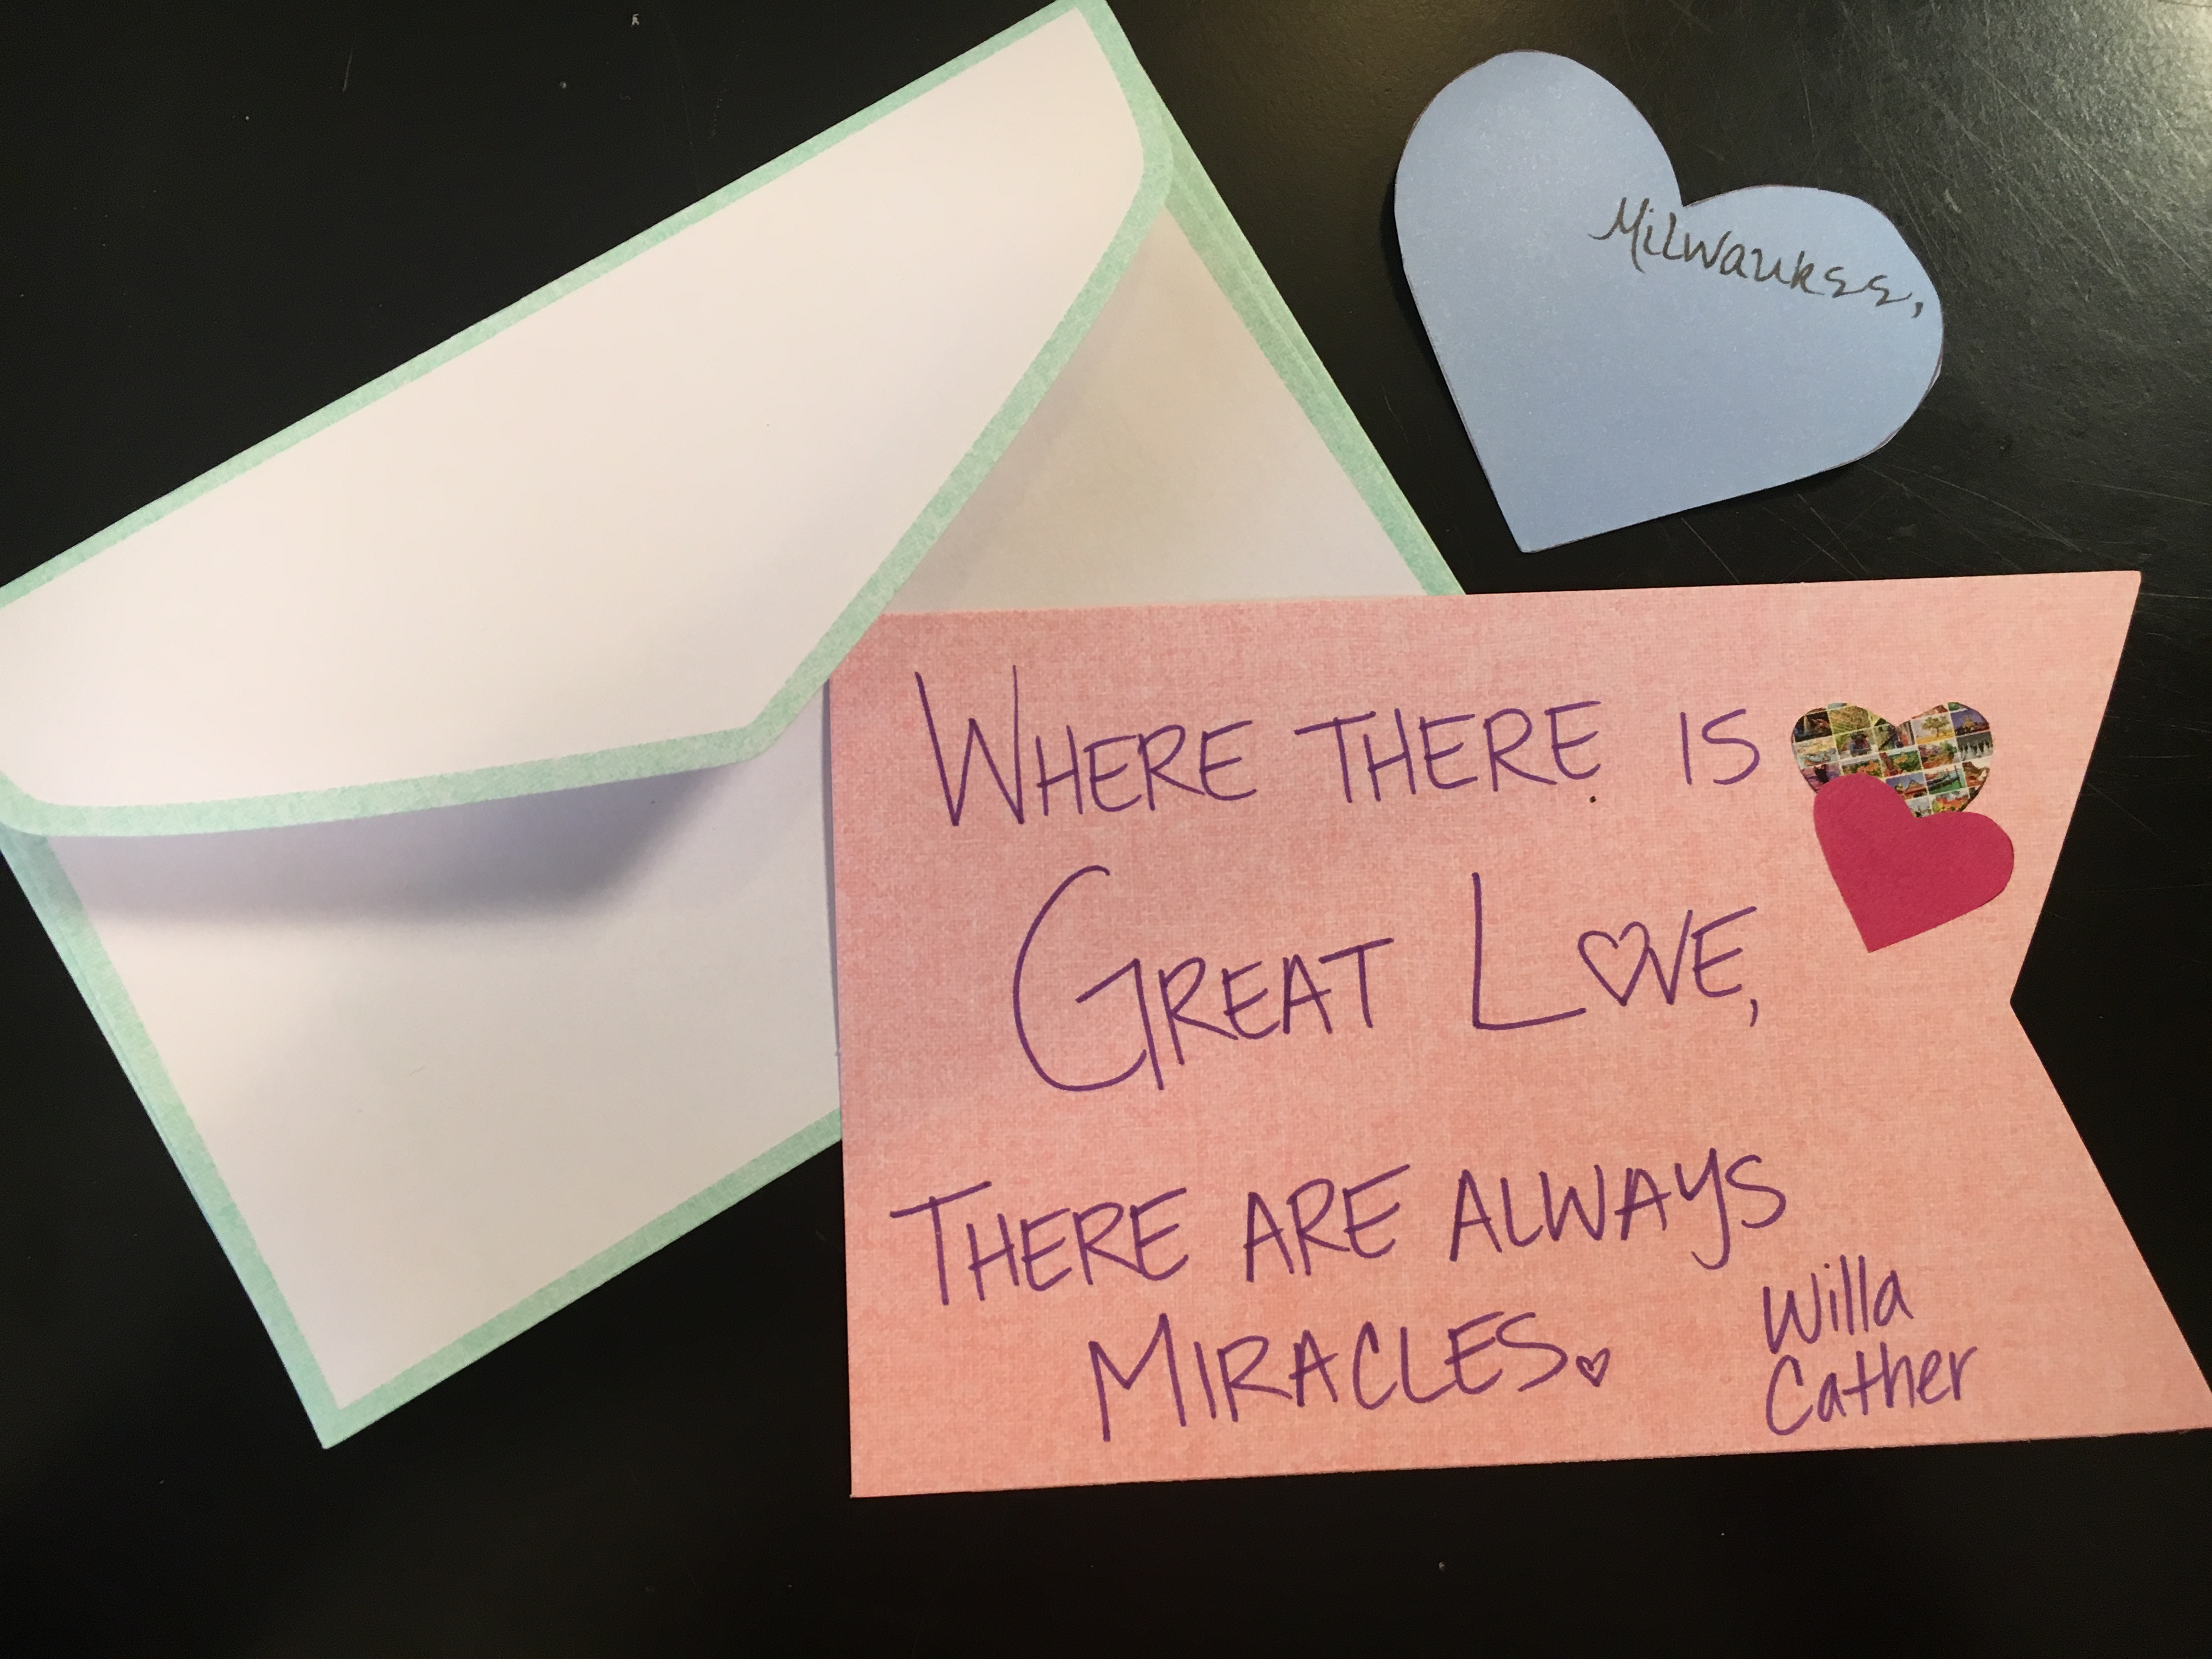 Milwaukee,
WHERE THERE IS
GREAT LOVE,
THERE ARE ALWAYS
MIRACLES.
Willa
Cather